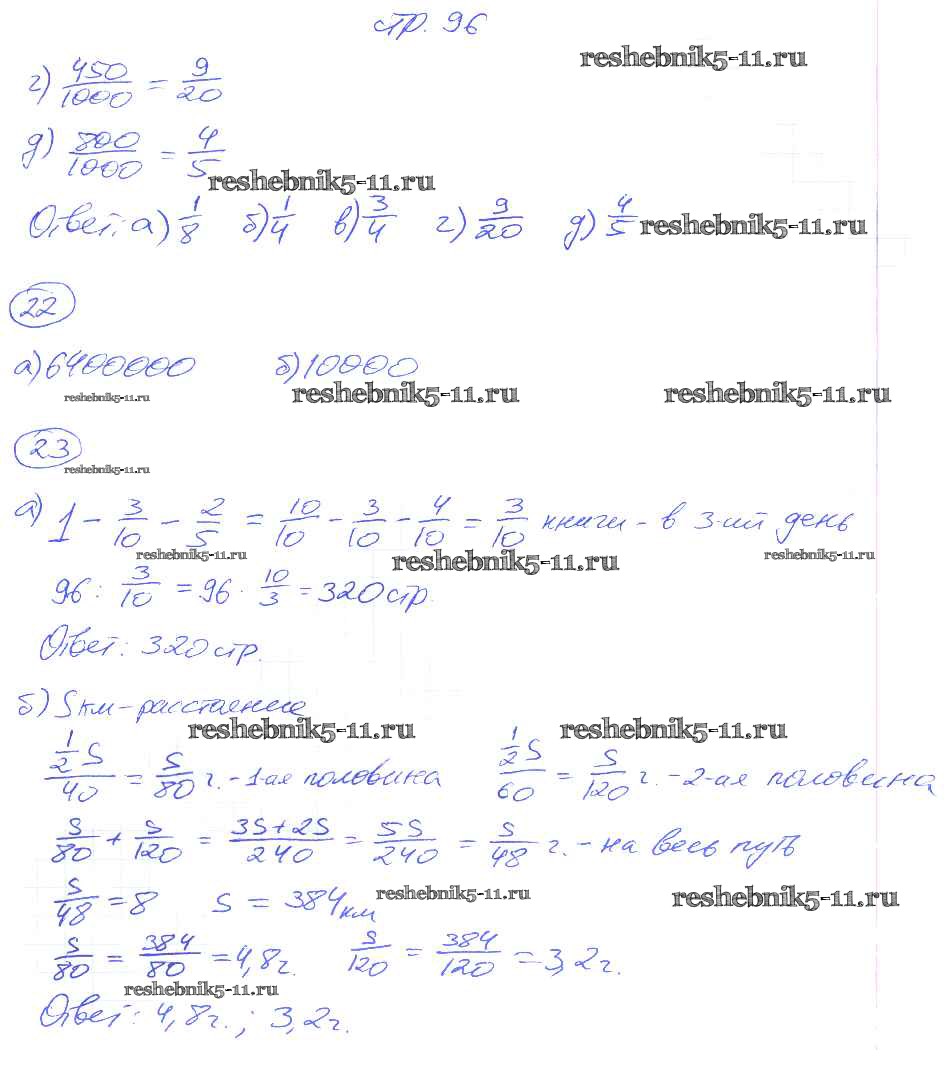 стр. 96
reshebnik5-11.ru
г) 450/1000 = 9/20
д) 800/1000 = 4/5
reshebnik5-11.ru
Ответ: а) 1/8 б) 1/4 в) 3/4 г) 9/20 д) 4/5 reshebnik5-11.ru
22
а) 6400000 б) 10000
reshebnik5-11.ru reshebnik5-11.ru reshebnik5-11.ru
23
reshebnik5-11.ru
а) 1 - 3/10 - 2/5 = 10/10 - 3/10 - 4/10 = 3/10 книги - в 3-ий день
reshebnik5-11.ru reshebnik5-11.ru reshebnik5-11.ru
96 : 3/10 = 96 · 10/3 = 320 стр.
Ответ: 320 стр.
б) S км - расстаение
reshebnik5-11.ru reshebnik5-11.ru
1/2 S/40 = S/80 г. - 1-ая половина 1/2 S/60 = S/120 г. - 2-ая половина
S/80 + S/120 = 3S+2S/240 = 5S/240 = S/48 г. - на весь путь
S/48 = 8 S = 384 км reshebnik5-11.ru reshebnik5-11.ru
S/80 = 384/80 = 4,8 г. S/120 = 384/120 = 3,2 г.
reshebnik5-11.ru
Ответ: 4,8 г.; 3,2 г.